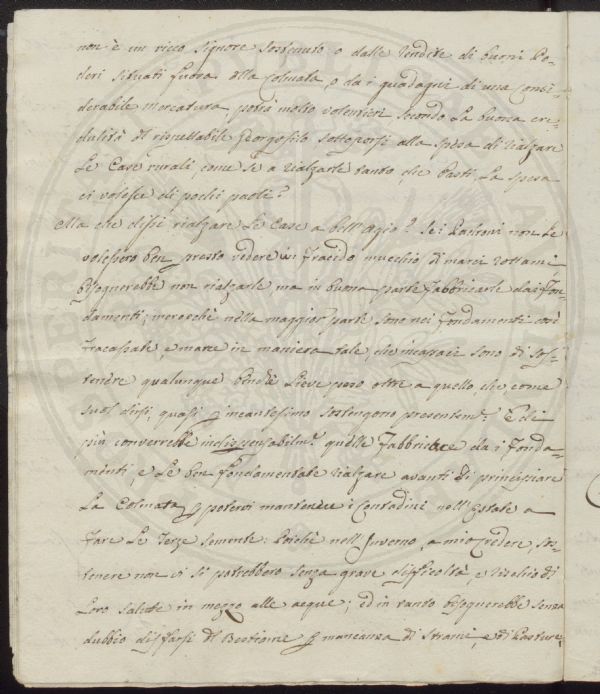 non è un ricco Signore sostenuto o dalle rendite di buoni Po-
deri situati fuora alla Colmata, o da i guadagni di una Consi-
derabile mercatura potrà molto volentieri secondo La buona cre-
dulità del rispettabile Georgofilo sottoporsi alla spesa di rialzare
Le Case rurali, come se a rialzarle tanto, che basti, La spesa
ci volesse di pochi paoli?
Ma che dissi rialzare Le Case a bell'agio? Se i Padroni non Le
volessero ben presto vedere un fracido mucchio di marci rottami
bisognerebbe non rialzarle, ma in buona parte fabbricarle dai Fon-
damenti; merocchè nella maggior parte sono nei Fondamenti così
fracassate, e marce in maniera tale, che incapaci sono di sos-
tenere qualunque benchè Lieve peso oltre a quello, che, come
suol dirsi, quasi p incantesimo sostengono presentem.e E di
più converrebbe indispensabilm.e quelle Fabbricare da i Fonda-
menti, e Le ben fondamentate rialzare avanti di principiare
La Colmata p potervi mantenere i Contadini nell'Estate a
fare Le Terze semente. Poichè nell'Inverno, a mio credere, sos-
tenere non vi si potrebbero senza grave difficoltà, e risehio di
Loro salute in mezzo alle acque; ed in tanto bisognerebbe senza
dubbio disfarsi del Bestiame p mancanza di Strami, e di Pasture,